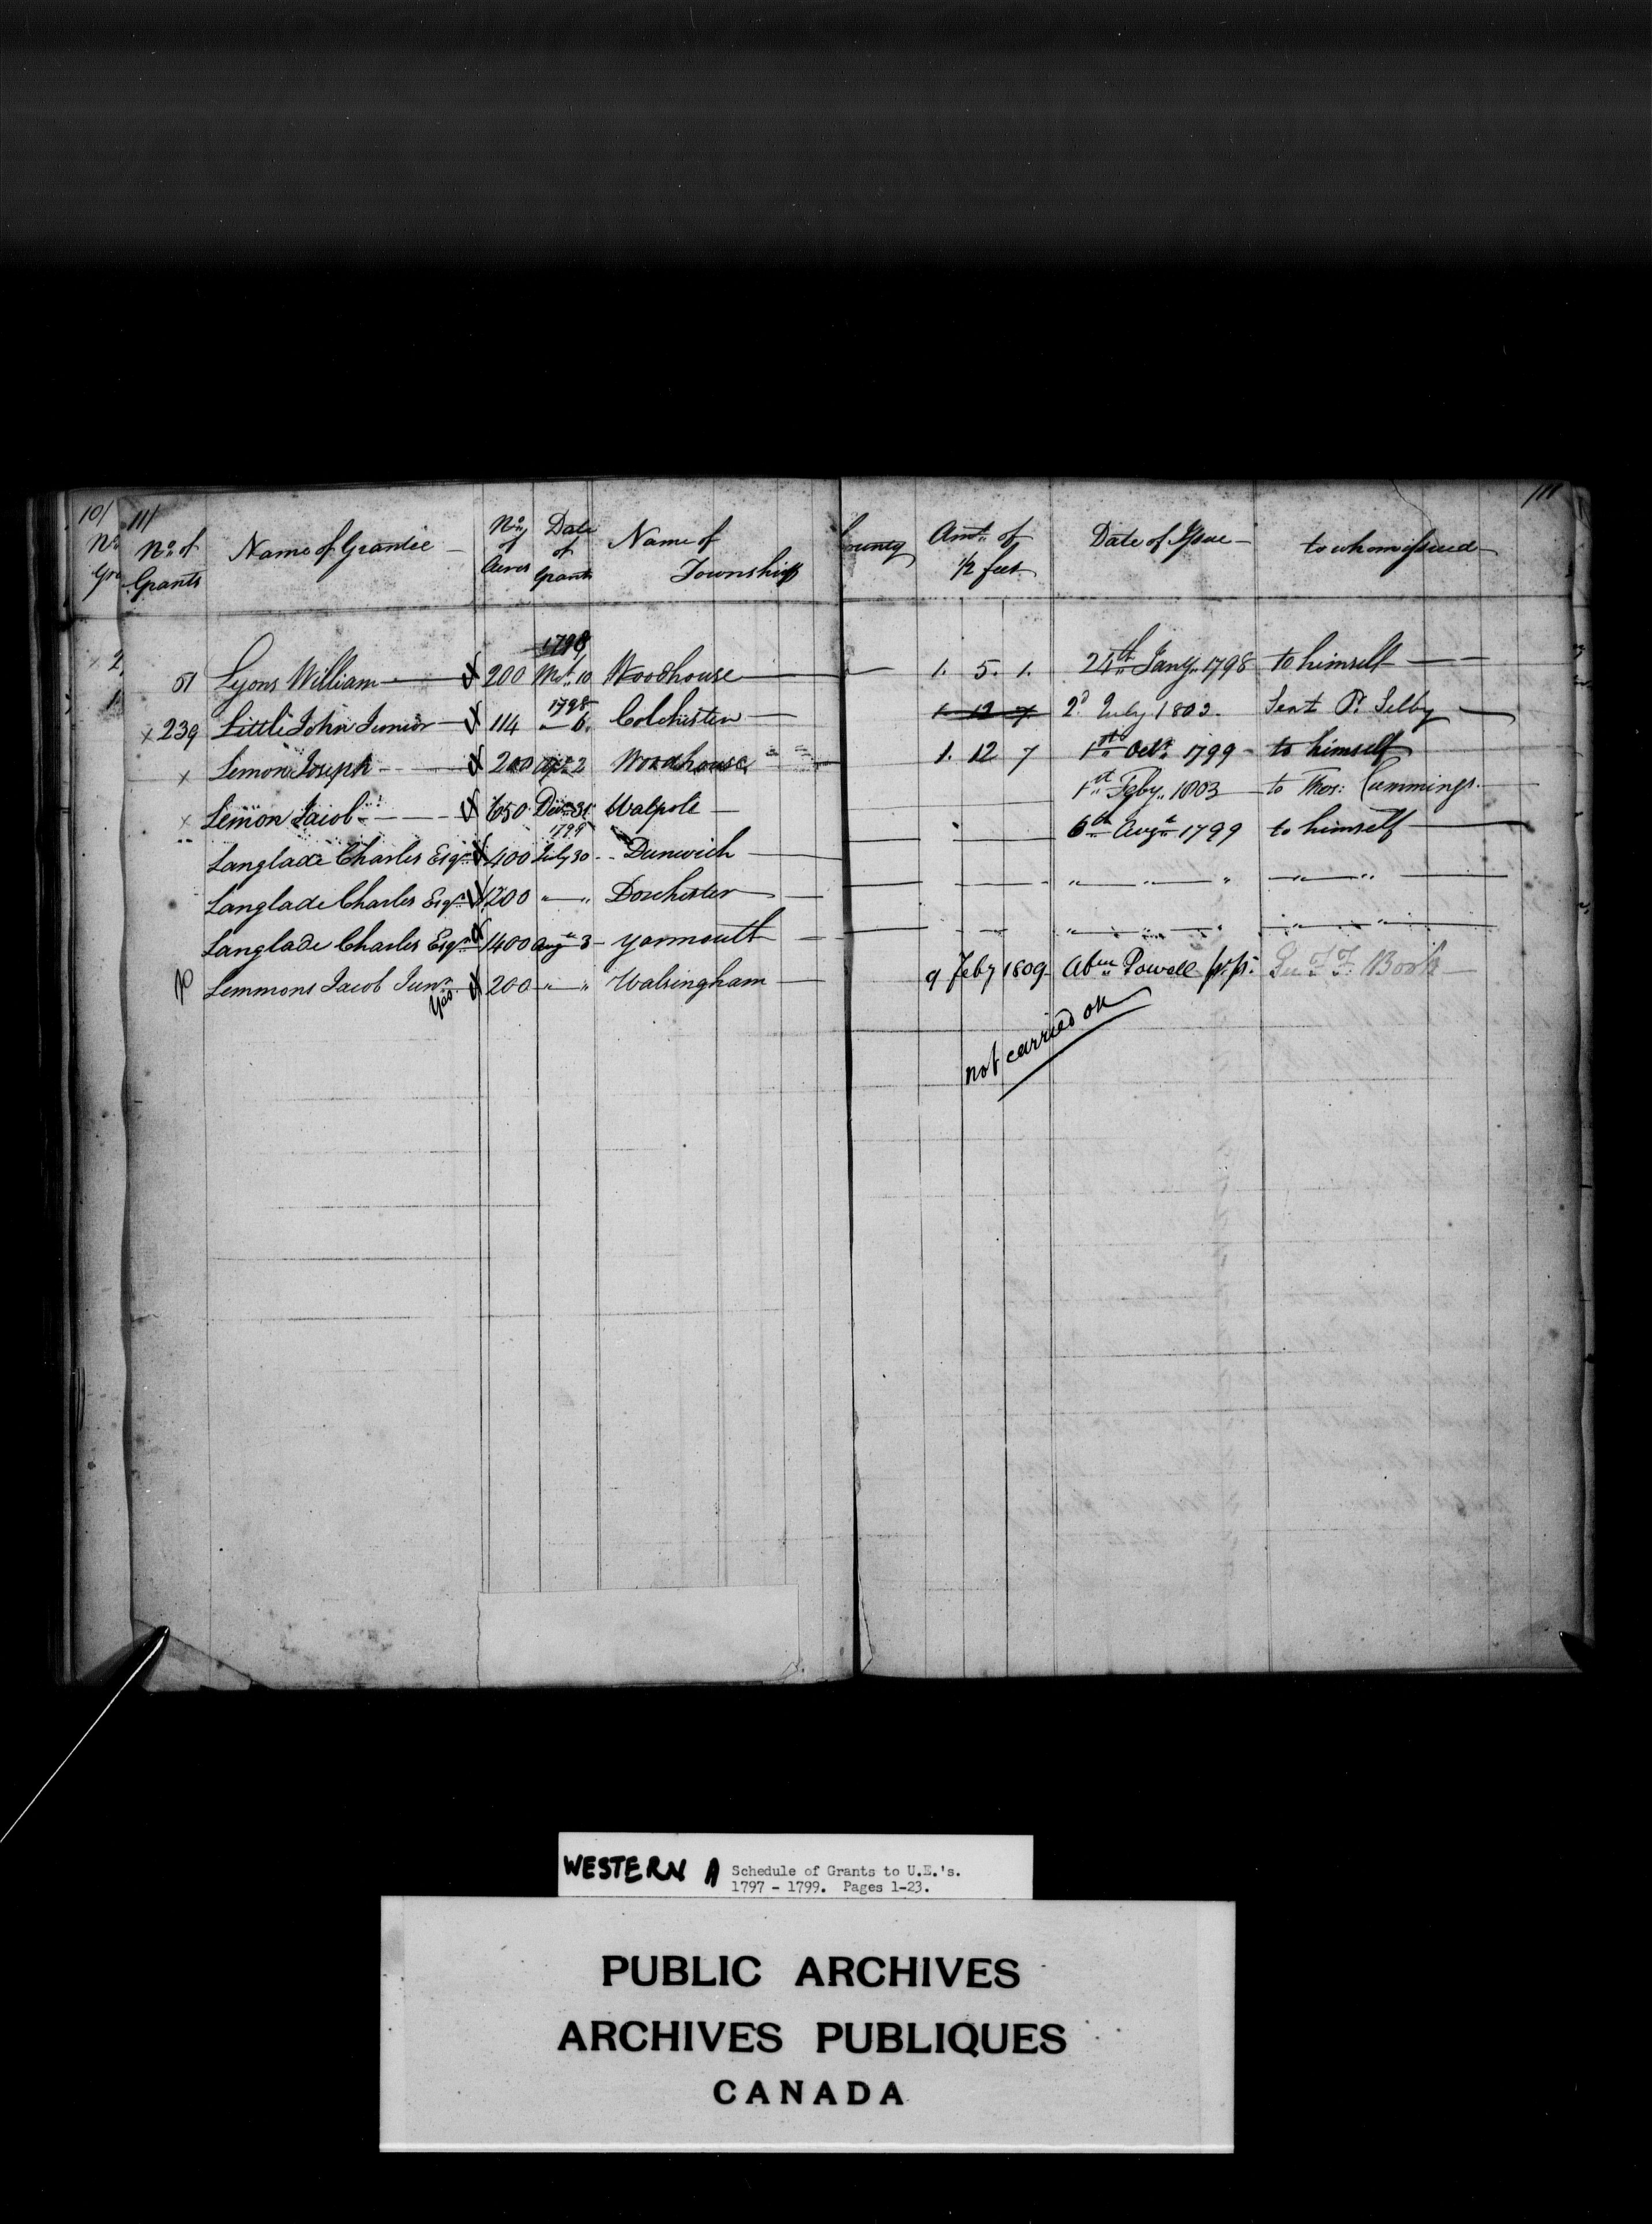 101 111 111
No. of Grants Name of Grantee No. of Acres Date of Grants Name of Township County Amt. of 1/2 fees Date of Issue to whom issued
1798
51 Lyons William 200 10 Woodhouse 1. 5. 1. Jany. 1798 to himself
1798
x 239 Little John Junior 114 " 6. Colchester 1. 12 7 2d. July 1802. Sent P. Selby
x Lemon Joseph 200 2 Woodhouse 1. 12 7 1st Octr. 1799 to himself
x Lemon Jacob 650 Decr. 31 Walpole 1st Feby. 1803 to Thos: Cummings
1799
Langlade Charles Esqr. 400 July 30 Dunwich 6th Augt. 1799 to himself
Langlade Charles Esqr. 1200 " " Dorchester " " " " "
Langlade Charles Esqr. 1400 Augt. 3 Yarmouth " " " " "
Lemmons Jacob Junr. 200 " " Walsingham 9 Feby 1809 Abm Powell
Yes
not carried on
WESTERN A Schedule of Grants to U.E.'s.
1797 - 1799. Pages 1-23.
PUBLIC ARCHIVES
ARCHIVES PUBLIQUES
CANADA